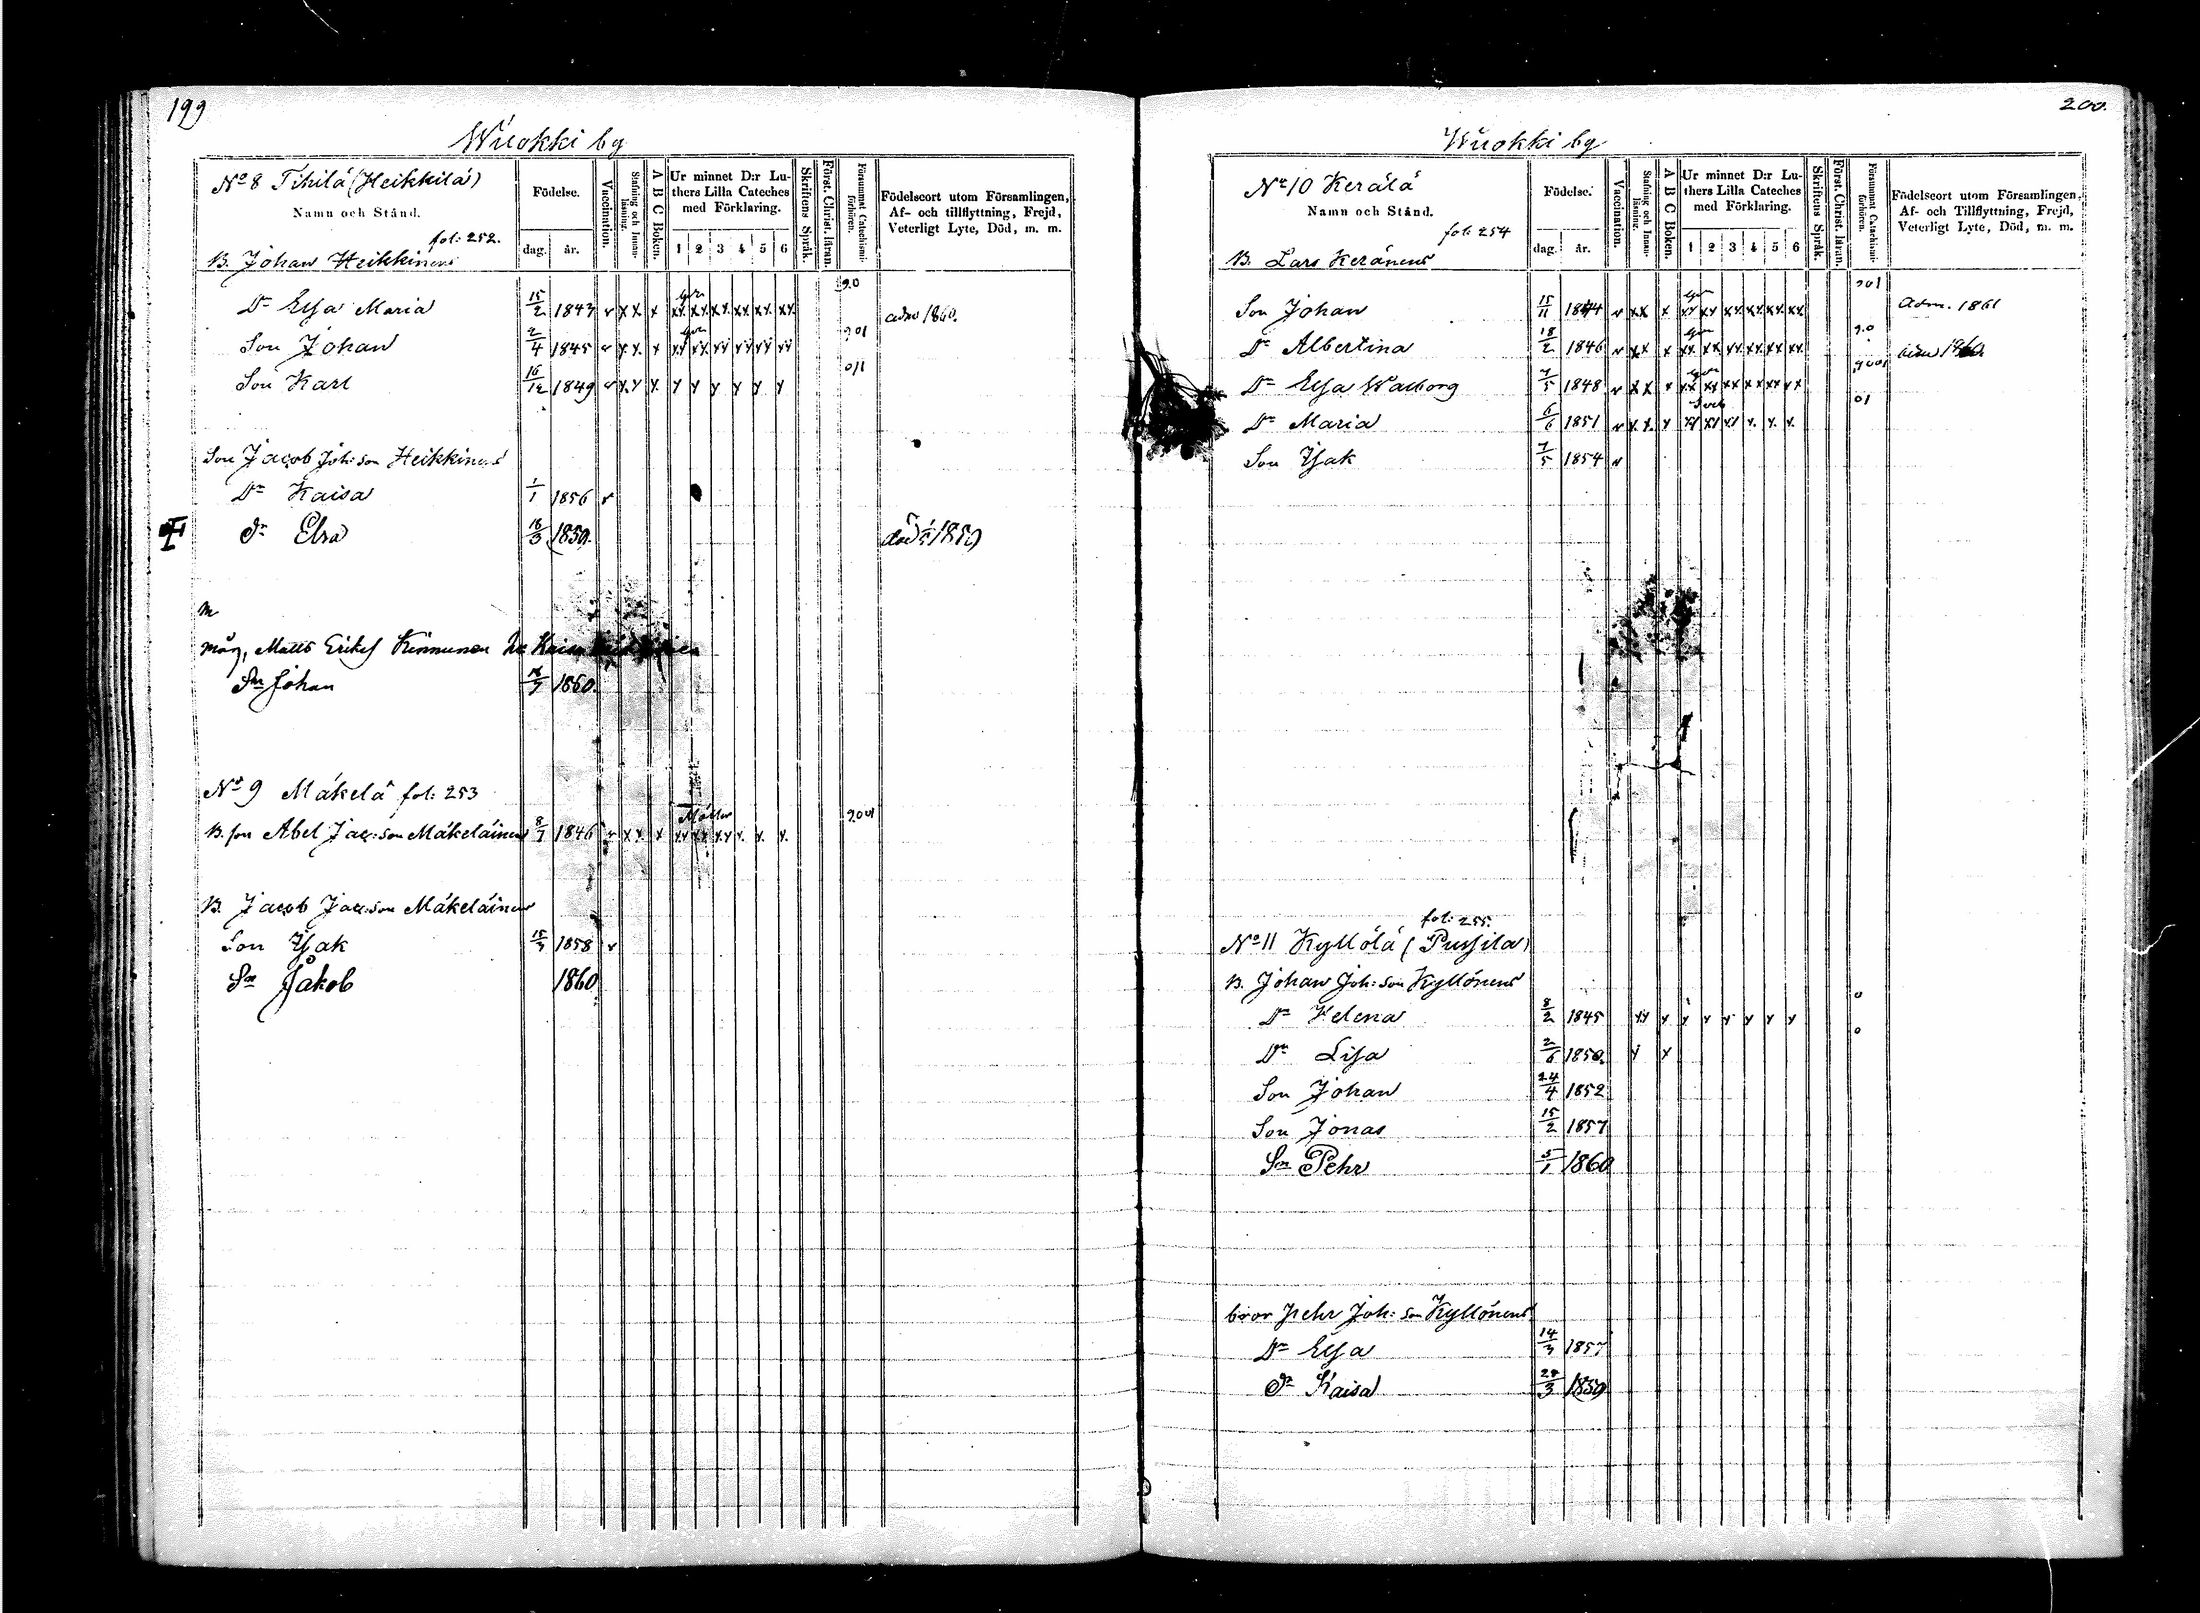 199
Wuokki by
No 8 Tihilä (Heikkilä)
Namn och Stånd.
fol: 252.
Födelse.
dag. år.
Vaccination.
Stafning och Innanläsning.
A B C Boken.
Ur minnet D:r Luthers Lilla Cateches med Förklaring.
1 2 3 4 5 6
Skriftens Språk.
Först. Christ. läran.
Försummat Catechismiförhören.
Födelseort utom Församlingen,
Af- och tillflyttning, Frejd,
Veterligt Lyte, Död, m. m.
B. Johan Heikkinens
Dr Elsa Maria 15/2 1843 v xx x xx xx xx xx xx xx 90 adm 1860.
Son Johan 2/4 1845 v x x. x xx xx xx xx xx xx 901
Son Karl 16/12 1849 v x x x x x x x x x 011
Son Jacob Joh:son Heikkinens
Dr Kaisa 1/1 1856 v
Dr Elsa 18/3 1859.
Måg, Matts Eriks Kinnunen
Sn Johan 1860.
No 9 Mäkelä fol: 253
B. son Abel Jac:son Mäkeläinens 8/7 1846 v x x x xx xx xx x. x. x. 9001
B. Jacob Jac:son Mäkeläinens
Son Isak 15/3 1858 v
Sn Jakob 1860
200.
Wuokki by
No 10 Kerälä
Namn och Stånd.
fol: 254
Födelse.
dag. år.
Vaccination.
Stafning och Innanläsning.
A B C Boken.
Ur minnet D:r Luthers Lilla Cateches med Förklaring.
1 2 3 4 5 6
Skriftens Språk.
Först. Christ. läran.
Försummat Catechismiförhören.
Födelseort utom Församlingen,
Af- och Tillflyttning, Frejd,
Veterligt Lyte, Död, m. m.
B. Lars Keränens
Son Johan 15/11 1844 v xx x xx xx xx xx xx xx 901 Adm. 1861
Dr Albertina 18/2 1846 v xx x xx xx xx xx xx xx 90
Dr Elsa Walborg 7/5 1848 v x x x xx xx xx xx xx xx
Dr Maria 6/6 1851 v x x. x xx xx xx x. x. x. 01
Son Isak 7/5 1854 v
fol: 255.
No 11 Kyllölä (Pussila)
B. Johan Joh:son Kyllönens
Dr Helena 8/2 1845 xx x x x x x x x 0
Dr Lisa 2/6 1850. x x 0
Son Johan 24/4 1852
Son Jonas 15/2 1857
Sn Pehr 5/1 1860
bror Pehr Joh:son Kyllönens
Dr Elsa 14/3 1857
Dr Kaisa 28/3 1859